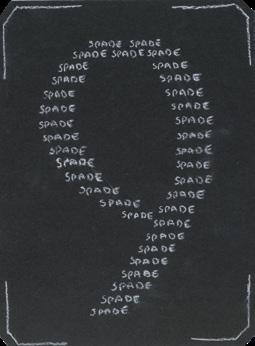 SPADE SPADE
SPADE SPADE SPADE
SPADE SPADE
SPADE SPADE
SPADE SPADE
SPADE SPADE
SPADE SPADE
SPADE SPADE
SPADE SPADE
SPADE SPADE
SPADE SPADE
SPADE SPADE
SPADE
SPADE SPADE
SPADE
SPADE
SPADE
SPADE
SPADE
SPADE
SPADE
SPADE